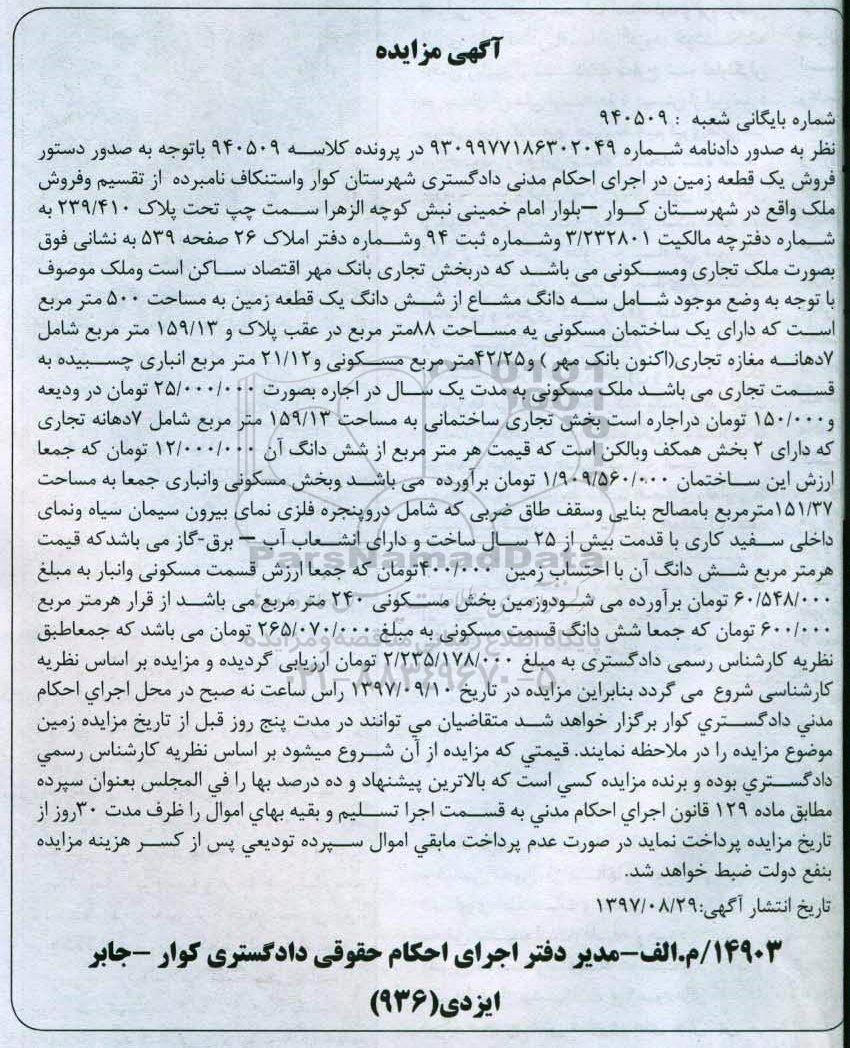 آگهی مزایده
شماره بایگانی شعبه : ۹۴۰۵۰۹
نظر به صدور دادنامه شماره ۹۳۰۹۹۷۷۱۸۶۳۰۲۰۴۹ در پرونده کلاسه ۹۴۰۵۰۹ باتوجه به صدور دستور
فروش یک قطعه زمین در اجرای احکام مدنی دادگستری شهرستان کوار واستنکاف نامبرده از تقسیم وفروش
ملک واقع در شهرستان کوار –بلوار امام خمینی نبش کوچه الزهرا سمت چپ تحت پلاک ۲۳۹/۴۱۰ به
شماره دفترچه مالکیت ۳/۲۳۲۸۰۱ وشماره ثبت ۹۴ وشماره دفتر املاک ۲۶ صفحه ۵۳۹ به نشانی فوق
بصورت ملک تجاری ومسکونی می باشد که دربخش تجاری بانک مهر اقتصاد ساکن است وملک موصوف
با توجه به وضع موجود شامل سه دانگ مشاع از شش دانگ یک قطعه زمین به مساحت ۵۰۰ متر مربع
است که دارای یک ساختمان مسکونی یه مساحت ۸۸متر مربع در عقب پلاک و ۱۵۹/۱۳ متر مربع شامل
۷دهانه مغازه تجاری(اکنون بانک مهر ) و۴۲/۲۵متر مربع مسکونی و۲۱/۱۲ متر مربع انباری چسبیده به
قسمت تجاری می باشد ملک مسکونی به مدت یک سال در اجاره بصورت ۲۵/۰۰۰/۰۰۰ تومان در ودیعه
و۱۵۰/۰۰۰ تومان دراجاره است بخش تجاری ساختمانی به مساحت ۱۵۹/۱۳ متر مربع شامل ۷دهانه تجاری
که دارای ۲ بخش همکف وبالکن است که قیمت هر متر مربع از شش دانگ آن ۱۲/۰۰۰/۰۰۰ تومان که جمعا
ارزش این ساختمان ۱/۹۰۹/۵۶۰/۰۰۰ تومان برآورده می باشد وبخش مسکونی وانباری جمعا به مساحت
۱۵۱/۳۷مترمربع بامصالح بنایی وسقف طاق ضربی که شامل دروپنجره فلزی نمای بیرون سیمان سیاه ونمای
داخلی سفید کاری با قدمت بیش از ۲۵ سال ساخت و دارای انشعاب آب – برق-گاز می باشدکه قیمت
هرمتر مربع شش دانگ آن با احتساب زمین ۴۰۰/۰۰۰تومان که جمعا ارزش قسمت مسکونی وانبار به مبلغ
۶۰/۵۴۸/۰۰۰ تومان برآورده می شودوزمین بخش مسکونی ۲۴۰ متر مربع می باشد از قرار هرمتر مربع
۶۰۰/۰۰۰ تومان که جمعا شش دانگ قسمت مسکونی به مبلغ ۲۶۵/۰۷۰/۰۰۰ تومان می باشد که جمعاطبق
نظریه کارشناس رسمی دادگستری به مبلغ ۲/۲۳۵/۱۷۸/۰۰۰ تومان ارزیابی گردیده و مزایده بر اساس نظریه
کارشناسی شروع می گردد بنابراین مزایده در تاریخ ۱۳۹۷/۰۹/۱۰ راس ساعت نه صبح در محل اجراي احکام
مدني دادگستري کوار برگزار خواهد شد متقاضیان مي توانند در مدت پنج روز قبل از تاریخ مزایده زمین
موضوع مزایده را در ملاحظه نمایند. قیمتي که مزایده از آن شروع میشود بر اساس نظریه کارشناس رسمي
دادگستري بوده و برنده مزایده کسي است که بالاترین پیشنهاد و ده درصد بها را في المجلس بعنوان سپرده
مطابق ماده ۱۲۹ قانون اجراي احکام مدني به قسمت اجرا تسلیم و بقیه بهاي اموال را ظرف مدت ۳۰روز از
تاریخ مزایده پرداخت نماید در صورت عدم پرداخت مابقي اموال سپرده تودیعي پس از کسر هزینه مزایده
بنفع دولت ضبط خواهد شد.
تاریخ انتشار آگهی:۱۳۹۷/۰۸/۲۹
۱۴۹۰۳/م.الف-مدیر دفتر اجرای احکام حقوقی دادگستری کوار –جابر
ایزدی(۹۳۶)
ParsNamadData
پایگاه اطلاع رسانی مناقصه و مزایده
۰۲۱-۸۸۳۴۹۶۷۰-۵